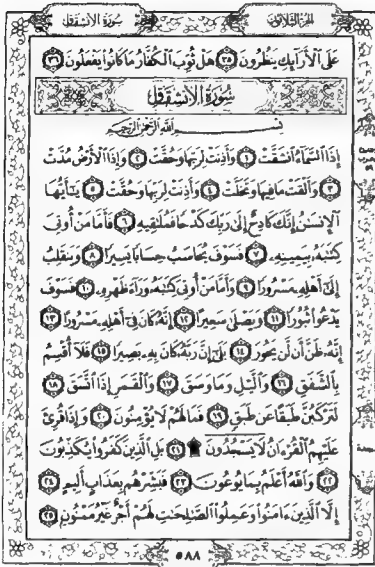 سورة الانشقاق
الجزء الثلاثون
على الأرائك ينظرون ٣٥ هل ثوب الكفار ما كانوا يفعلون ٣٦
سورة الانشقاق
بسم الله الرحمن الرحيم
إذا السماء انشقت ١ وأذنت لربها وحقت ٢ وإذا الأرض مدت
٣ وألقت ما فيها وتخلت ٤ وأذنت لربها وحقت ٥ يأيها
الإنسن إنك كادح إلى ربك كدحا فملقيه ٦ فأما من أوتي
كتبه بيمينه ٧ فسوف يحاسب حسابا يسيرا ٨ وينقلب
إلى أهله مسرورا ٩ وأما من أوتي كتبه وراء ظهره ١٠ فسوف
يدعوا ثبورا ١١ ويصلى سعيرا ١٢ إنه كان في أهله مسرورا ١٣
إنه ظن أن لن يحور ١٤ بلى إن ربه كان به بصيرا ١٥ فلا أقسم
بالشفق ١٦ واليل وما وسق ١٧ والقمر إذا اتسق ١٨
لتركبن طبقا عن طبق ١٩ فما لهم لا يؤمنون ٢٠ وإذا قرئ
عليهم القرءان لا يسجدون ۩ ٢١ بل الذين كفروا يكذبون
٢٢ والله أعلم بما يوعون ٢٣ فبشرهم بعذاب أليم ٢٤
إلا الذين ءامنوا وعملوا الصلحت لهم أجر غير ممنون ٢٥
٥٨٨